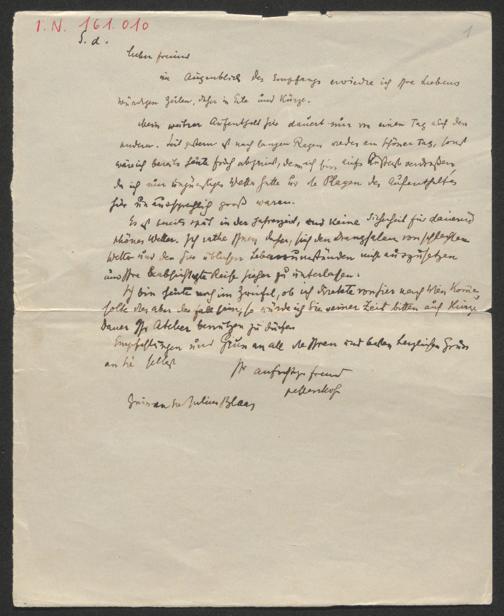 I.N. 161.010
1
S. d.
Lieber Freund
im Augenblick des Empfangs erwiedre ich Ihre liebens
würdigen Zeilen, daher in Eile und Kürze.
Mein weitrer Aufenthalt hier dauert nur von einem Tag auf den
anderen. Seit gestern ist nach langen Regen wieder ein schöner Tag, sonst
wäre ich bereits heute früh abgereist, denn ich bin aufs Äußerste verdrossen,
da ich nur ungünstiges Wetter hatte und die Plagen des Aufenthaltes
hier unaussprechlich groß waren.
Es ist bereits spät in der Jahreszeit, und keine Sicherheit für dauernd
schönes Wetter. Ich rathe Ihnen daher, sich den Drangsalen von schlechtem
Wetter und den hier üblichen Lebensumständen nicht auszusetzen
und Ihre beabsichtigte Reise hieher zu unterlassen.
Ich bin heute noch im Zweifel, ob ich direkte von hier nach Wien komme
sollte dies aber der Fall sein, so würde ich Sie seiner Zeit bitten auf kurze
Dauer Ihr Atelier benützen zu dürfen
Empfehlungen und Grüße an alle die Ihren und besten herzlichen Gruß
an Sie selbst
Ihr aufrichtiger Freund
Pettenkofen
Grüße an die Julius Blaas